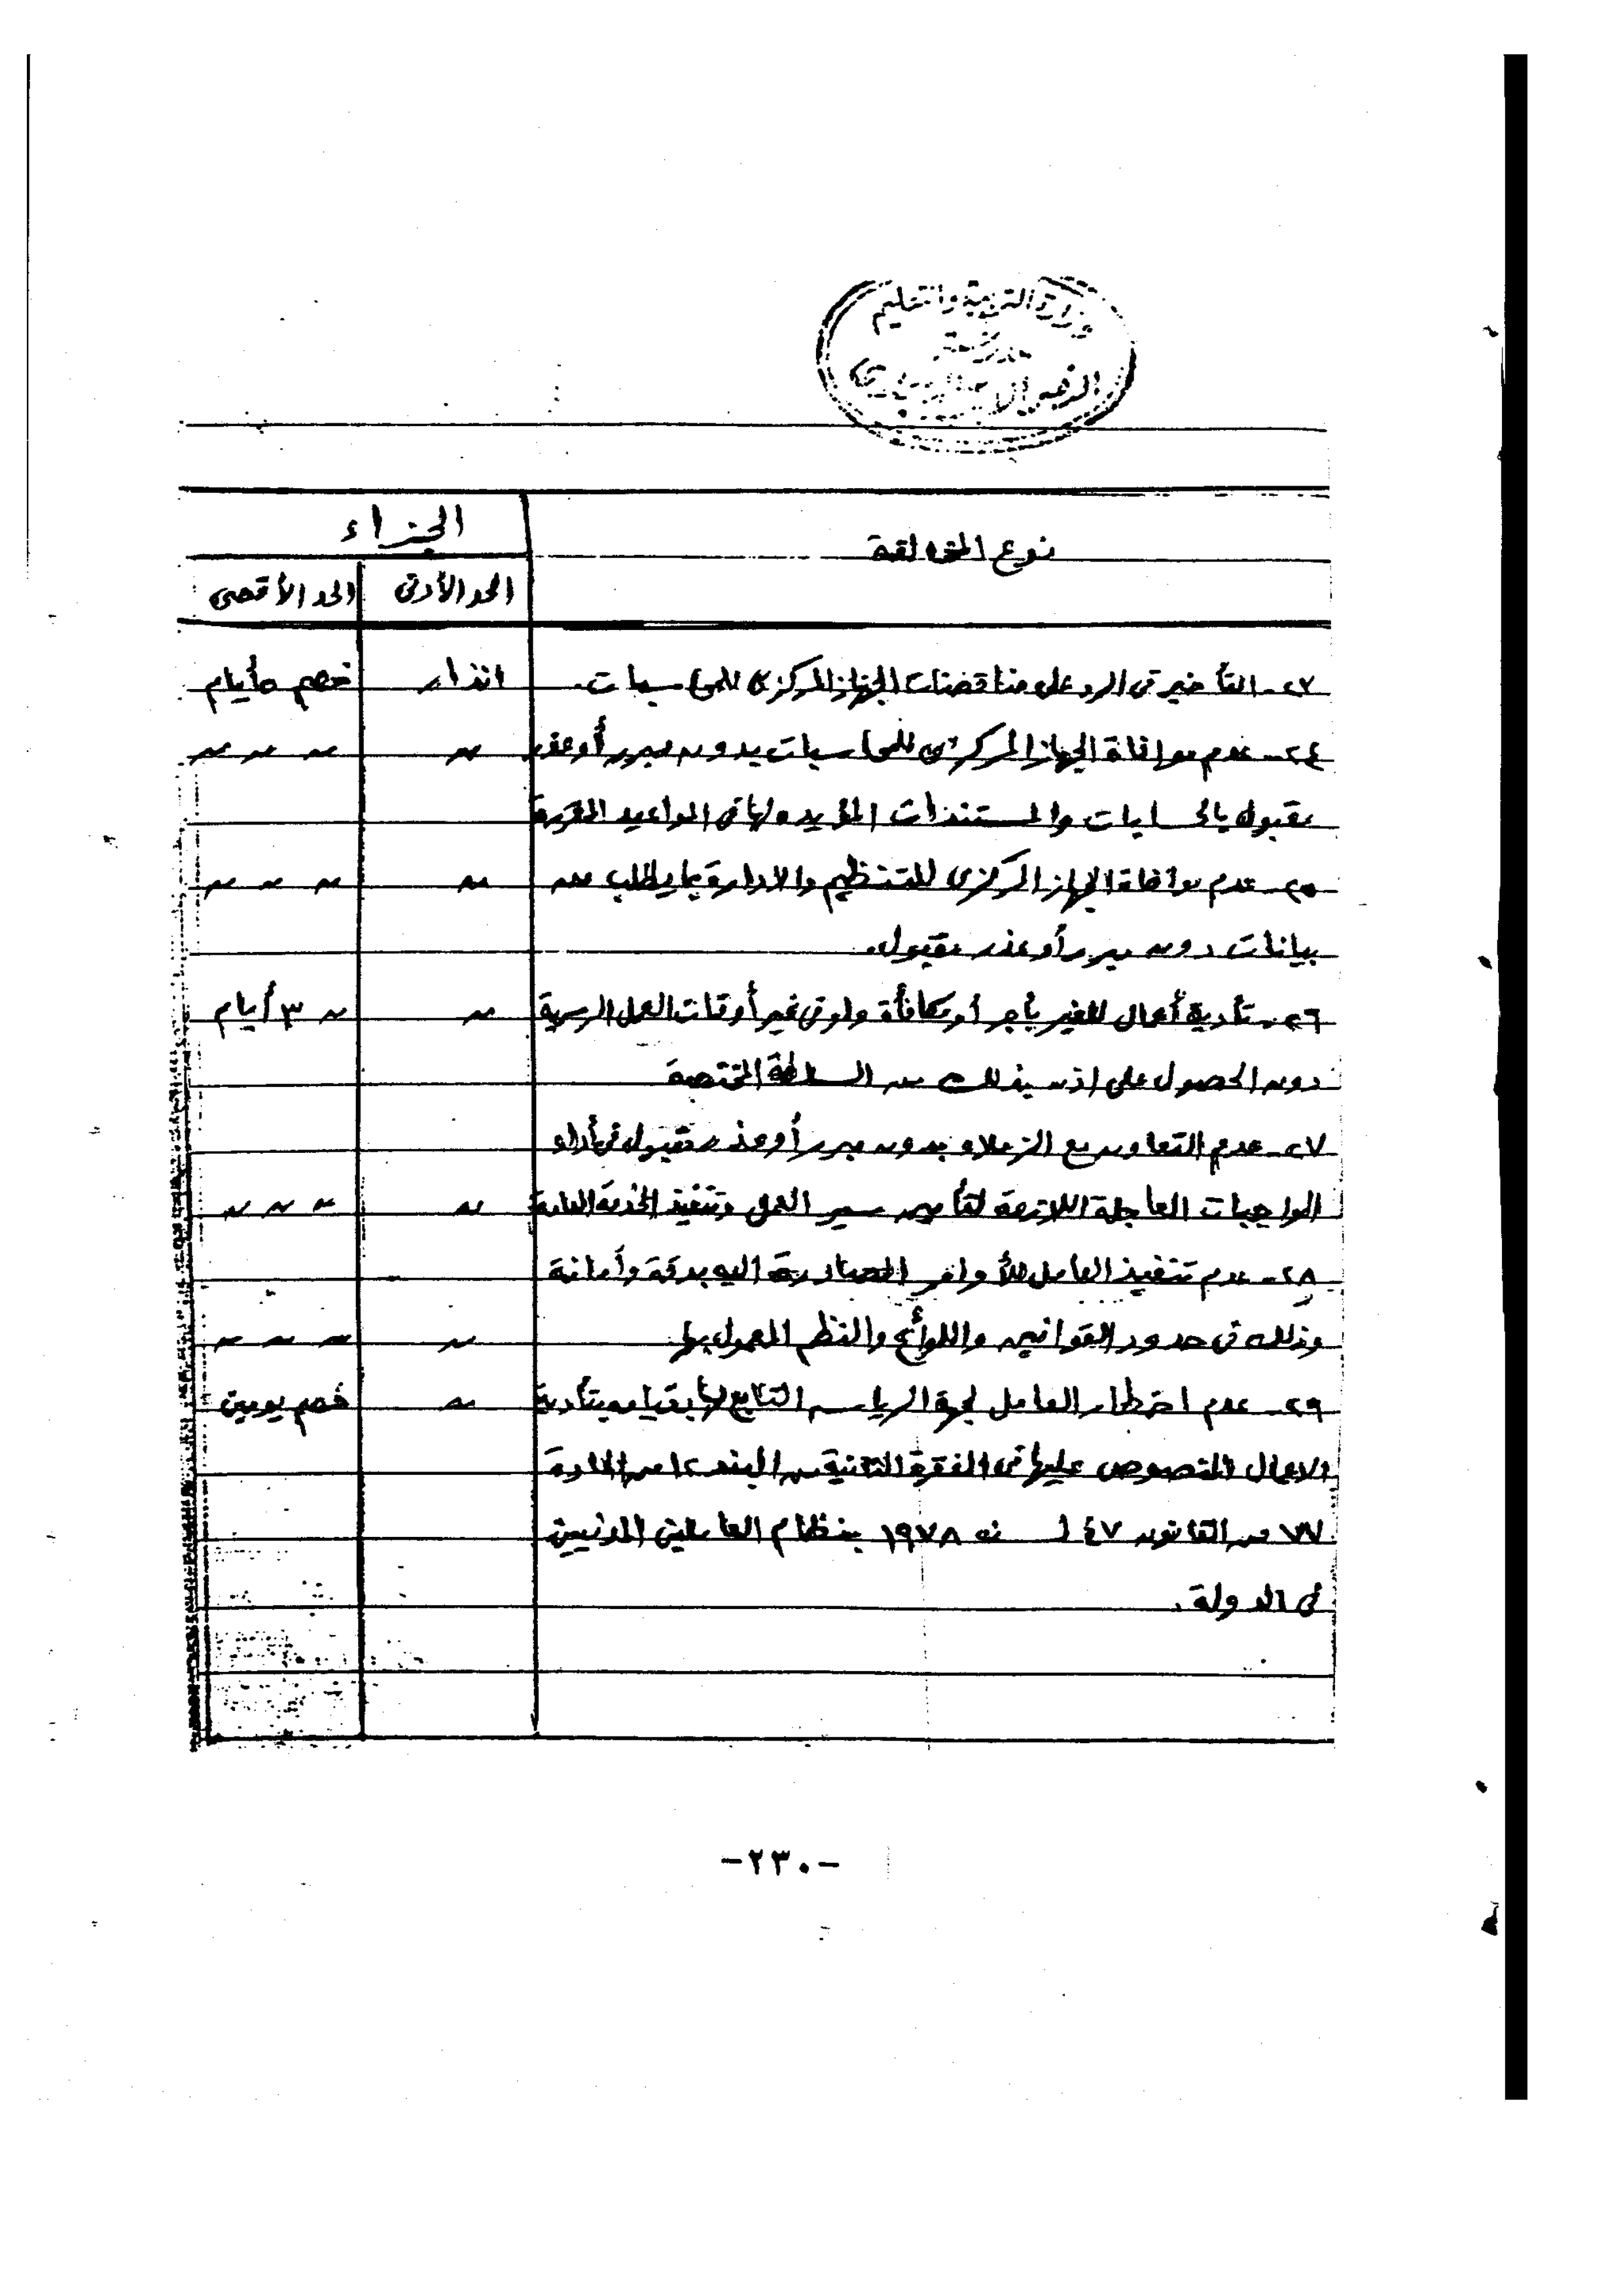 وزارة التربية والتعليم
مدرسة
نوع المخالفة
الجزاء
الحد الأدنى
الحد الأقصى
٢٧- التأخير فى الرد على مناقضات الجهاز المركزى للمحاسبات. انذار خصم ٥ أيام
٢٤- عدم موافاة الجهاز المركزى للمحاسبات بدون مبرر أو عذر 〃 〃 〃 〃
مقبول بالحسابات والمستندات المؤيده لها فى المواعيد المقررة
٢٥- عدم موافاة الجهاز المركزى للتنظيم والادارة بما يطلب من 〃 〃 〃 〃
بيانات دون مبرر أو عذر مقبول.
٢٦- تأدية أعمال للغير بأجر أو مكافأة ولو فى غير أوقات العمل الرسمية 〃 〃 ٣ أيام
دون الحصول على اذن بذلك من السلطة المختصة
٢٧- عدم التعاون مع الزملاء بدون مبرر أو عذر مقبول فى أداء
الواجبات العاجلة اللازمة لتأمين سير العمل وتنفيذ الخدمة العامة 〃 〃 〃 〃
٢٨- عدم تنفيذ العامل للأوامر الصادرة اليه بدقة وأمانة
وذلك فى حدود القوانين واللوائح والنظم المعمول بها 〃 〃 〃 〃
٢٩- عدم اخطار العامل لجهة الرياسه التابع لها بقيامه بتأدية 〃 خصم يومين
الاعمال المنصوص عليها فى الفقرة الثانية من البند ١٢ من المادة
٧٧ من القانون ٤٧ لسنه ١٩٧٨ بنظام العاملين المدنيين
فى الدولة.
-٢٣٠-